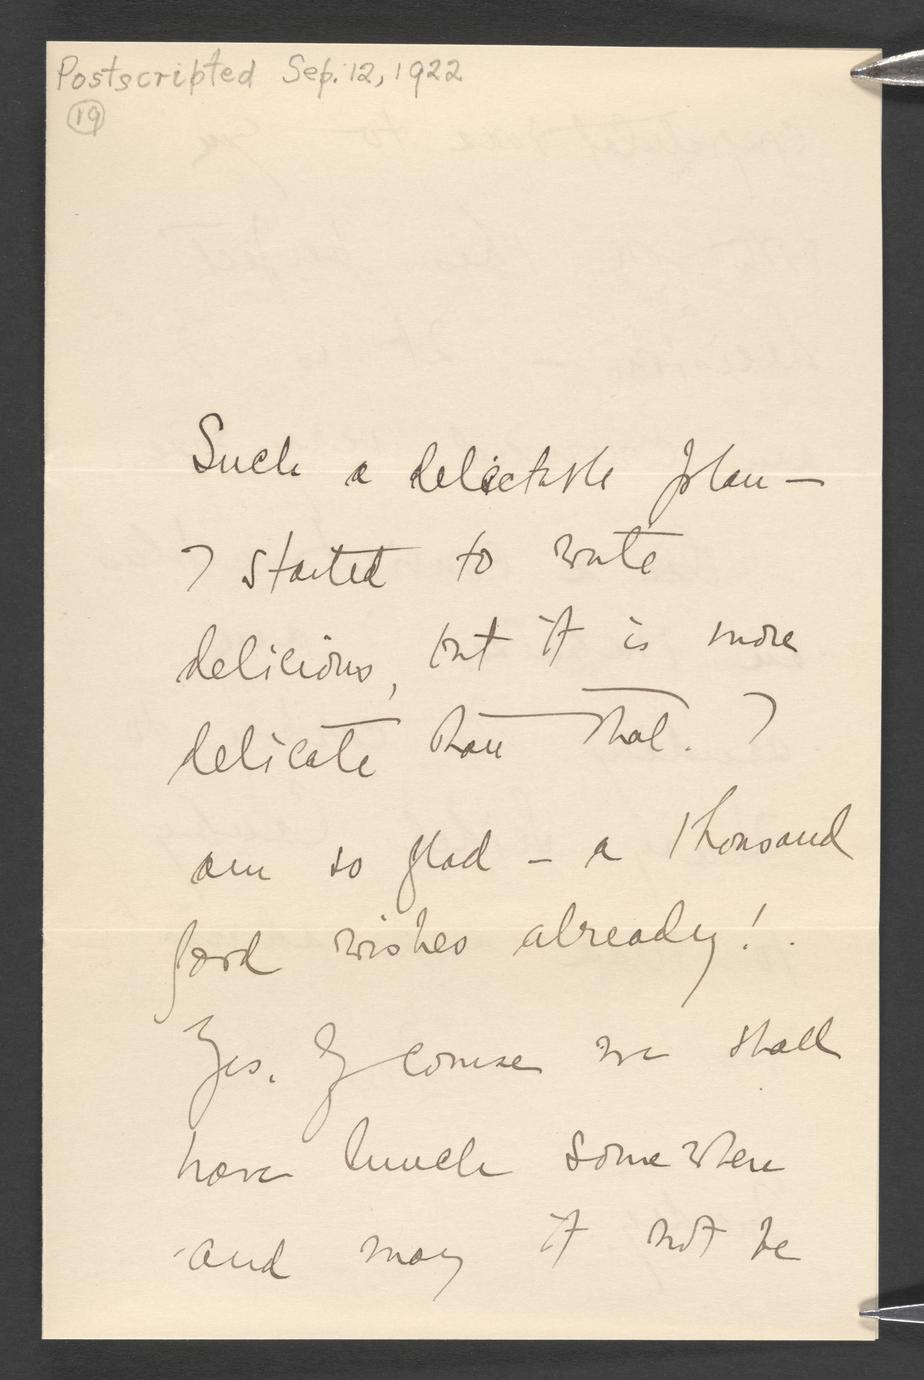 Postscripted Sep. 12, 1922
19
Such a delectable plan —
I started to write
delicious, but it is more
delicate than that. I
am so glad — a thousand
good wishes already!
Yes. Of course we shall
have lunch somewhere
and may it not be